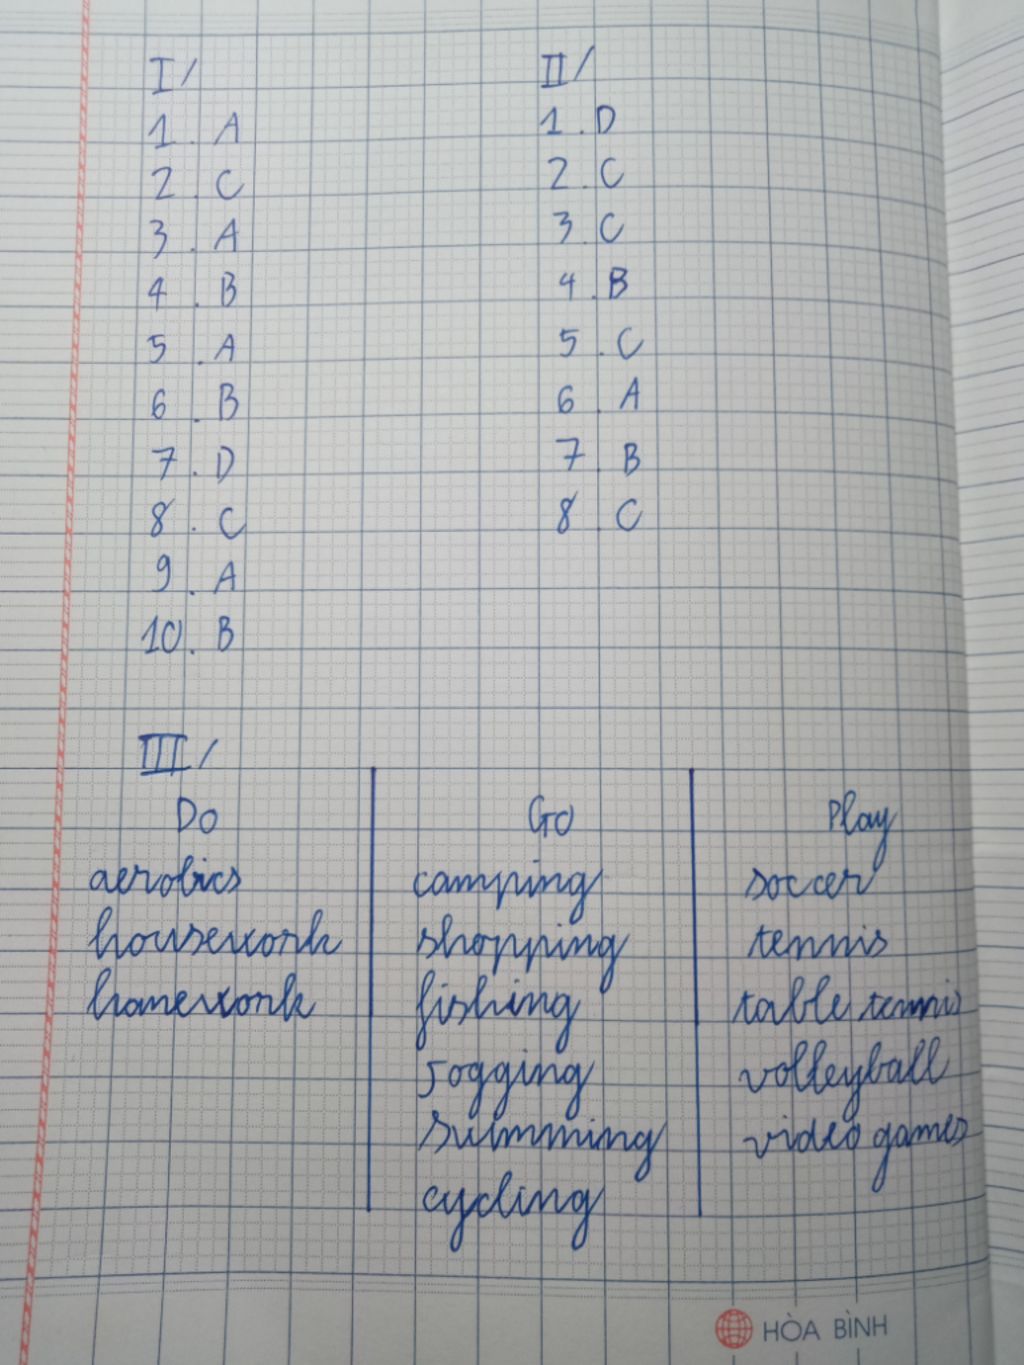 I/
1. A
2. C
3. A
4. B
5. A
6. B
7. D
8. C
9. A
10. B
II/
1. D
2. C
3. C
4. B
5. C
6. A
7. B
8. C
III/
Do Go Play
aerobics camping soccer
housework shopping tennis
homework fishing table tennis
Jogging volleyball
swimming video games
cycling
HÒA BÌNH